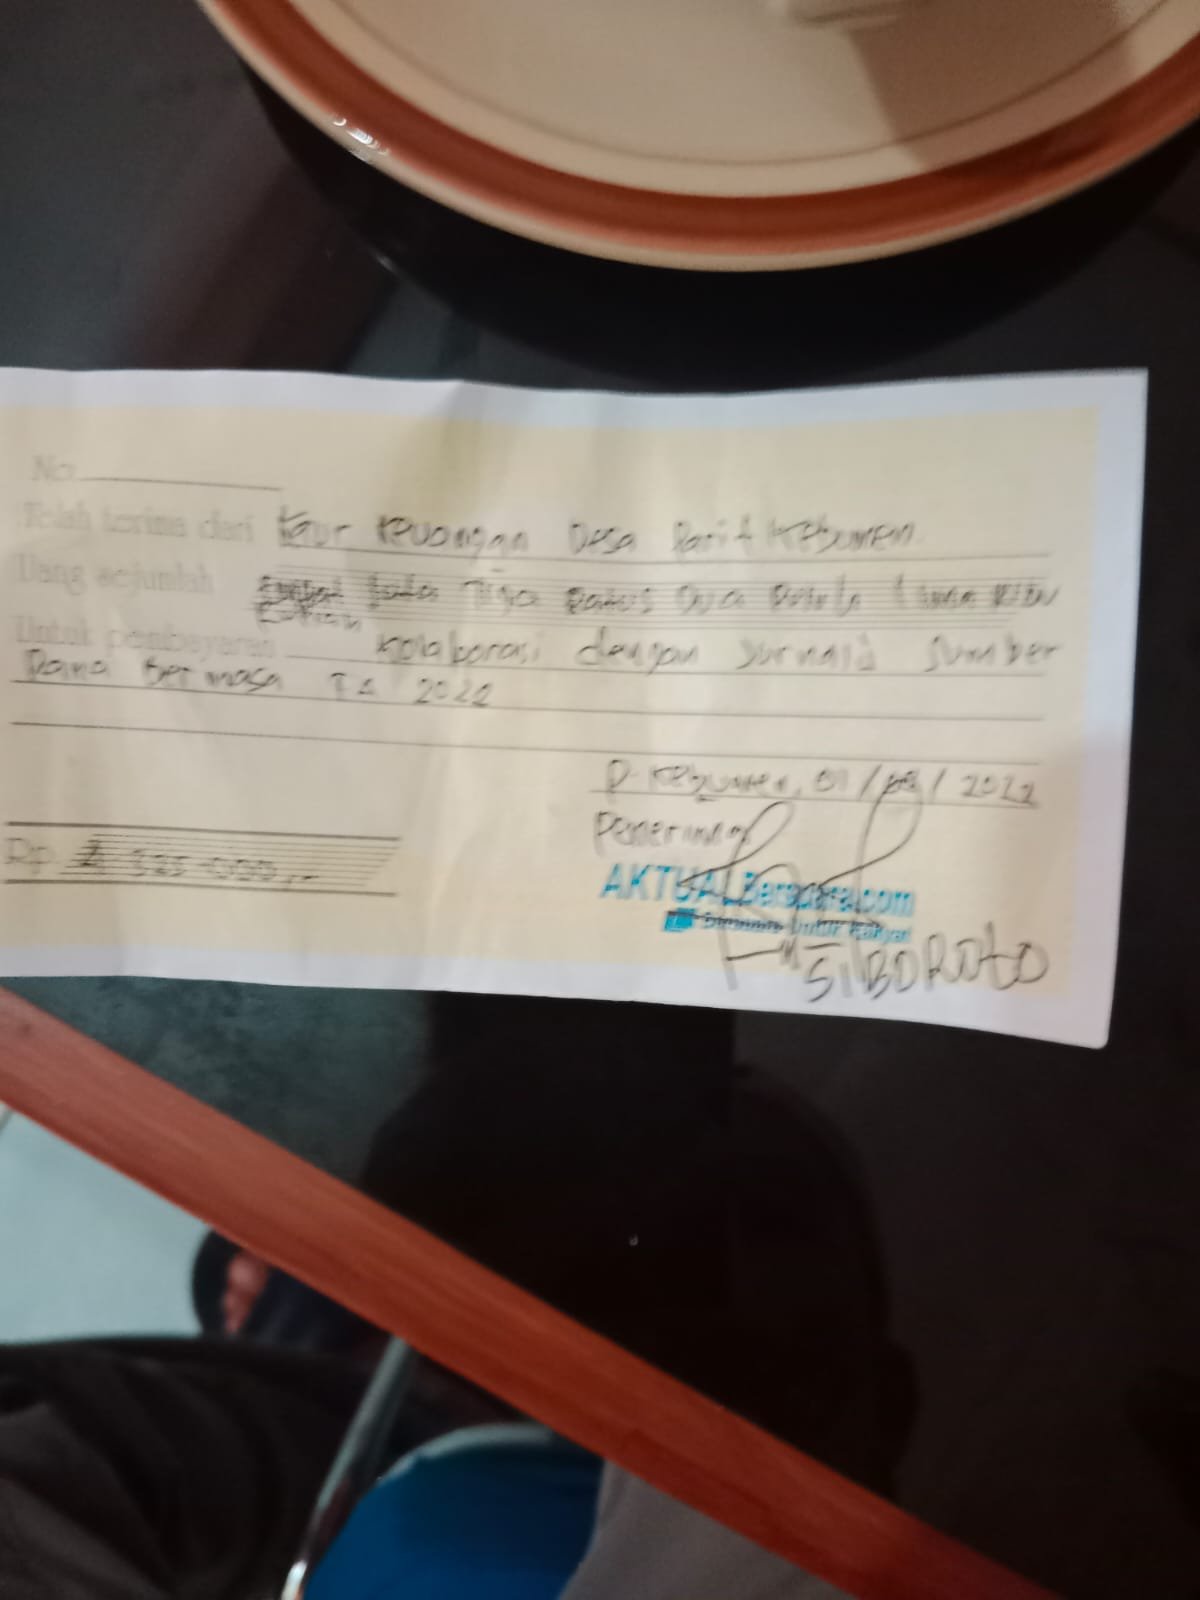 No.
Telah terima dari Kaur Keuangan Desa Parit Kebumen.
Uang sejumlah Empat Juta Tiga Ratus Dua Puluh Lima Ribu
Untuk pembayaran Kolaborasi dengan Jurnalis Sumber
Dana Bermasa TA 2022
P. Kebumen, 01/ /2022
Penerima
Rp 4 325.000,-
AKTUALBersuara.com
Untuk Rakyat
SIBOROTO